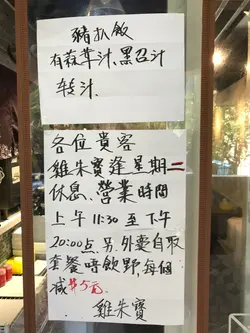 豬扒飯
有蒜茸汁,黑召汁
转汁.
各位貴客
雞朱寶逢星期二
休息、營業時間
上午11:30至下午
20:00点.另.外賣自取
套餐唔飲野,每個
減$5元
雞朱寶